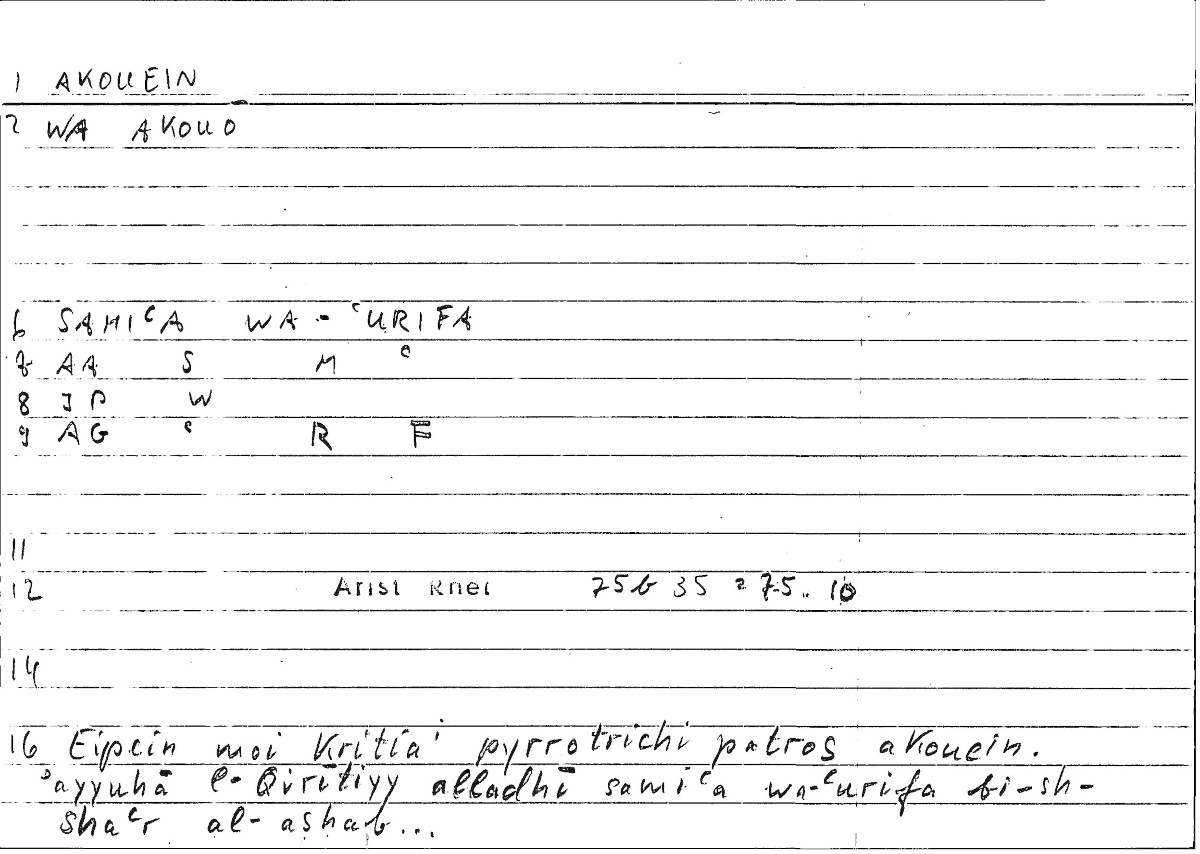 1 AKOUEIN
2 WA AKOUO
6 SAMIᶜA WA-ᶜURIFA
7 AA S M ᶜ
8 JP W
9 AG ᶜ R F
11
12 Arist Rhet 75b 35 = 75. 10
14
16 Eipein moi Kritiai pyrrotrichi patros akouein.
ʾayyuhā l-Qirītiyy alladhī samiᶜa wa-ᶜurifa bi-sh-
shaᶜr al-ashab...